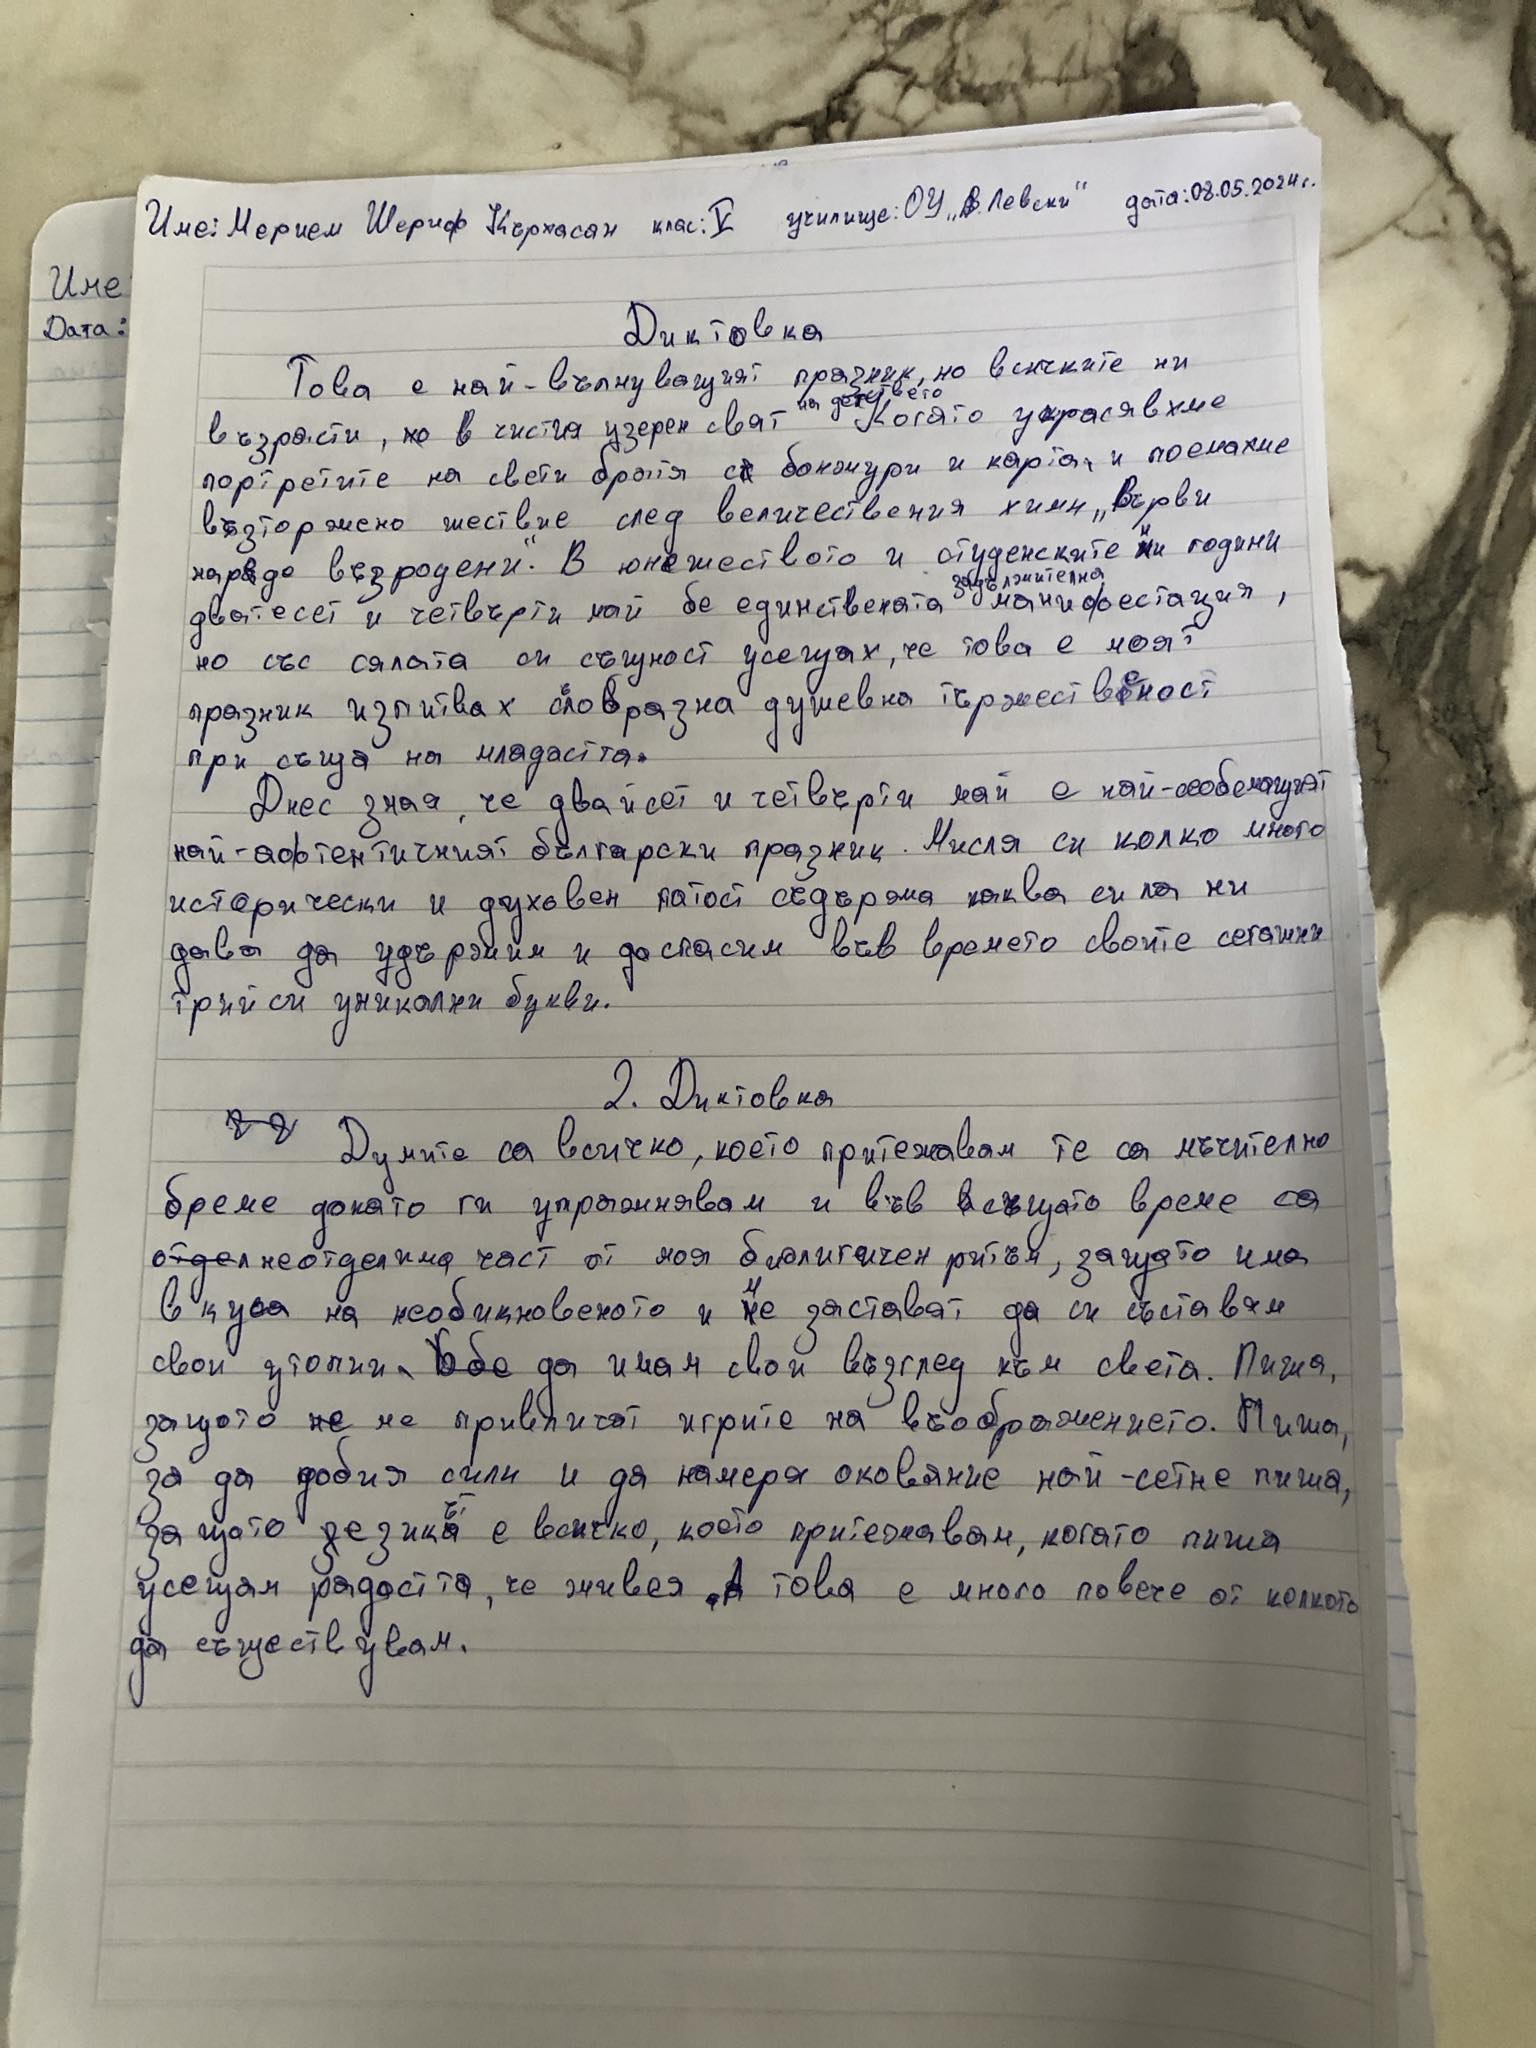 Име: Мерием Шериф Кърхасан клас: V училище: ОУ „В. Левски" дата: 08.05.2024г.
Име:
Дата:
Диктовка
Това е най-вълнуващият празник, но всичките ни
на детството
възрасти, но в чистия узерен свят Когато украсявхме
портретите на свети братя с божмури и карта, и поемахме
възторжено шествие след величествения химн „Върви
народе възродени". В юнежеството и студенските ни години
задължителна
дватесет и четвърти май бе единствената манифестация,
но със сялата си същност усещах, че това е моят
празник изпитвах словразна душевна тържественост
при съща на младастта.
Днес зная, че двайсет и четвърти май е най-своемащият
най-афтентичният български празник. Мисля си колко много
исторически и духовен патост съдържа каква сила ни
дава да удържим и даспасим във времето своите сегашни
трийси уникални букви.
2. Диктовка
Думите са всичко, което притежавам те са мъчително
бреме докато ги упражнявам и във всъщато време са
отделнеотделима част от моя биалигичен ритъм, защато има
в куса на необикновеното и ме заставят да си съставям
свои утопии, да имам свои възглед към света. Пиша,
защото не ме привличат игрите на въображението. Пиша,
за да добия сили и да намеря оковяние най-сетне пиша,
защато језикът е всичко, което притежавам, когато пиша
усещам радостта, че живея. А това е много повече от колкото
да съществувам.